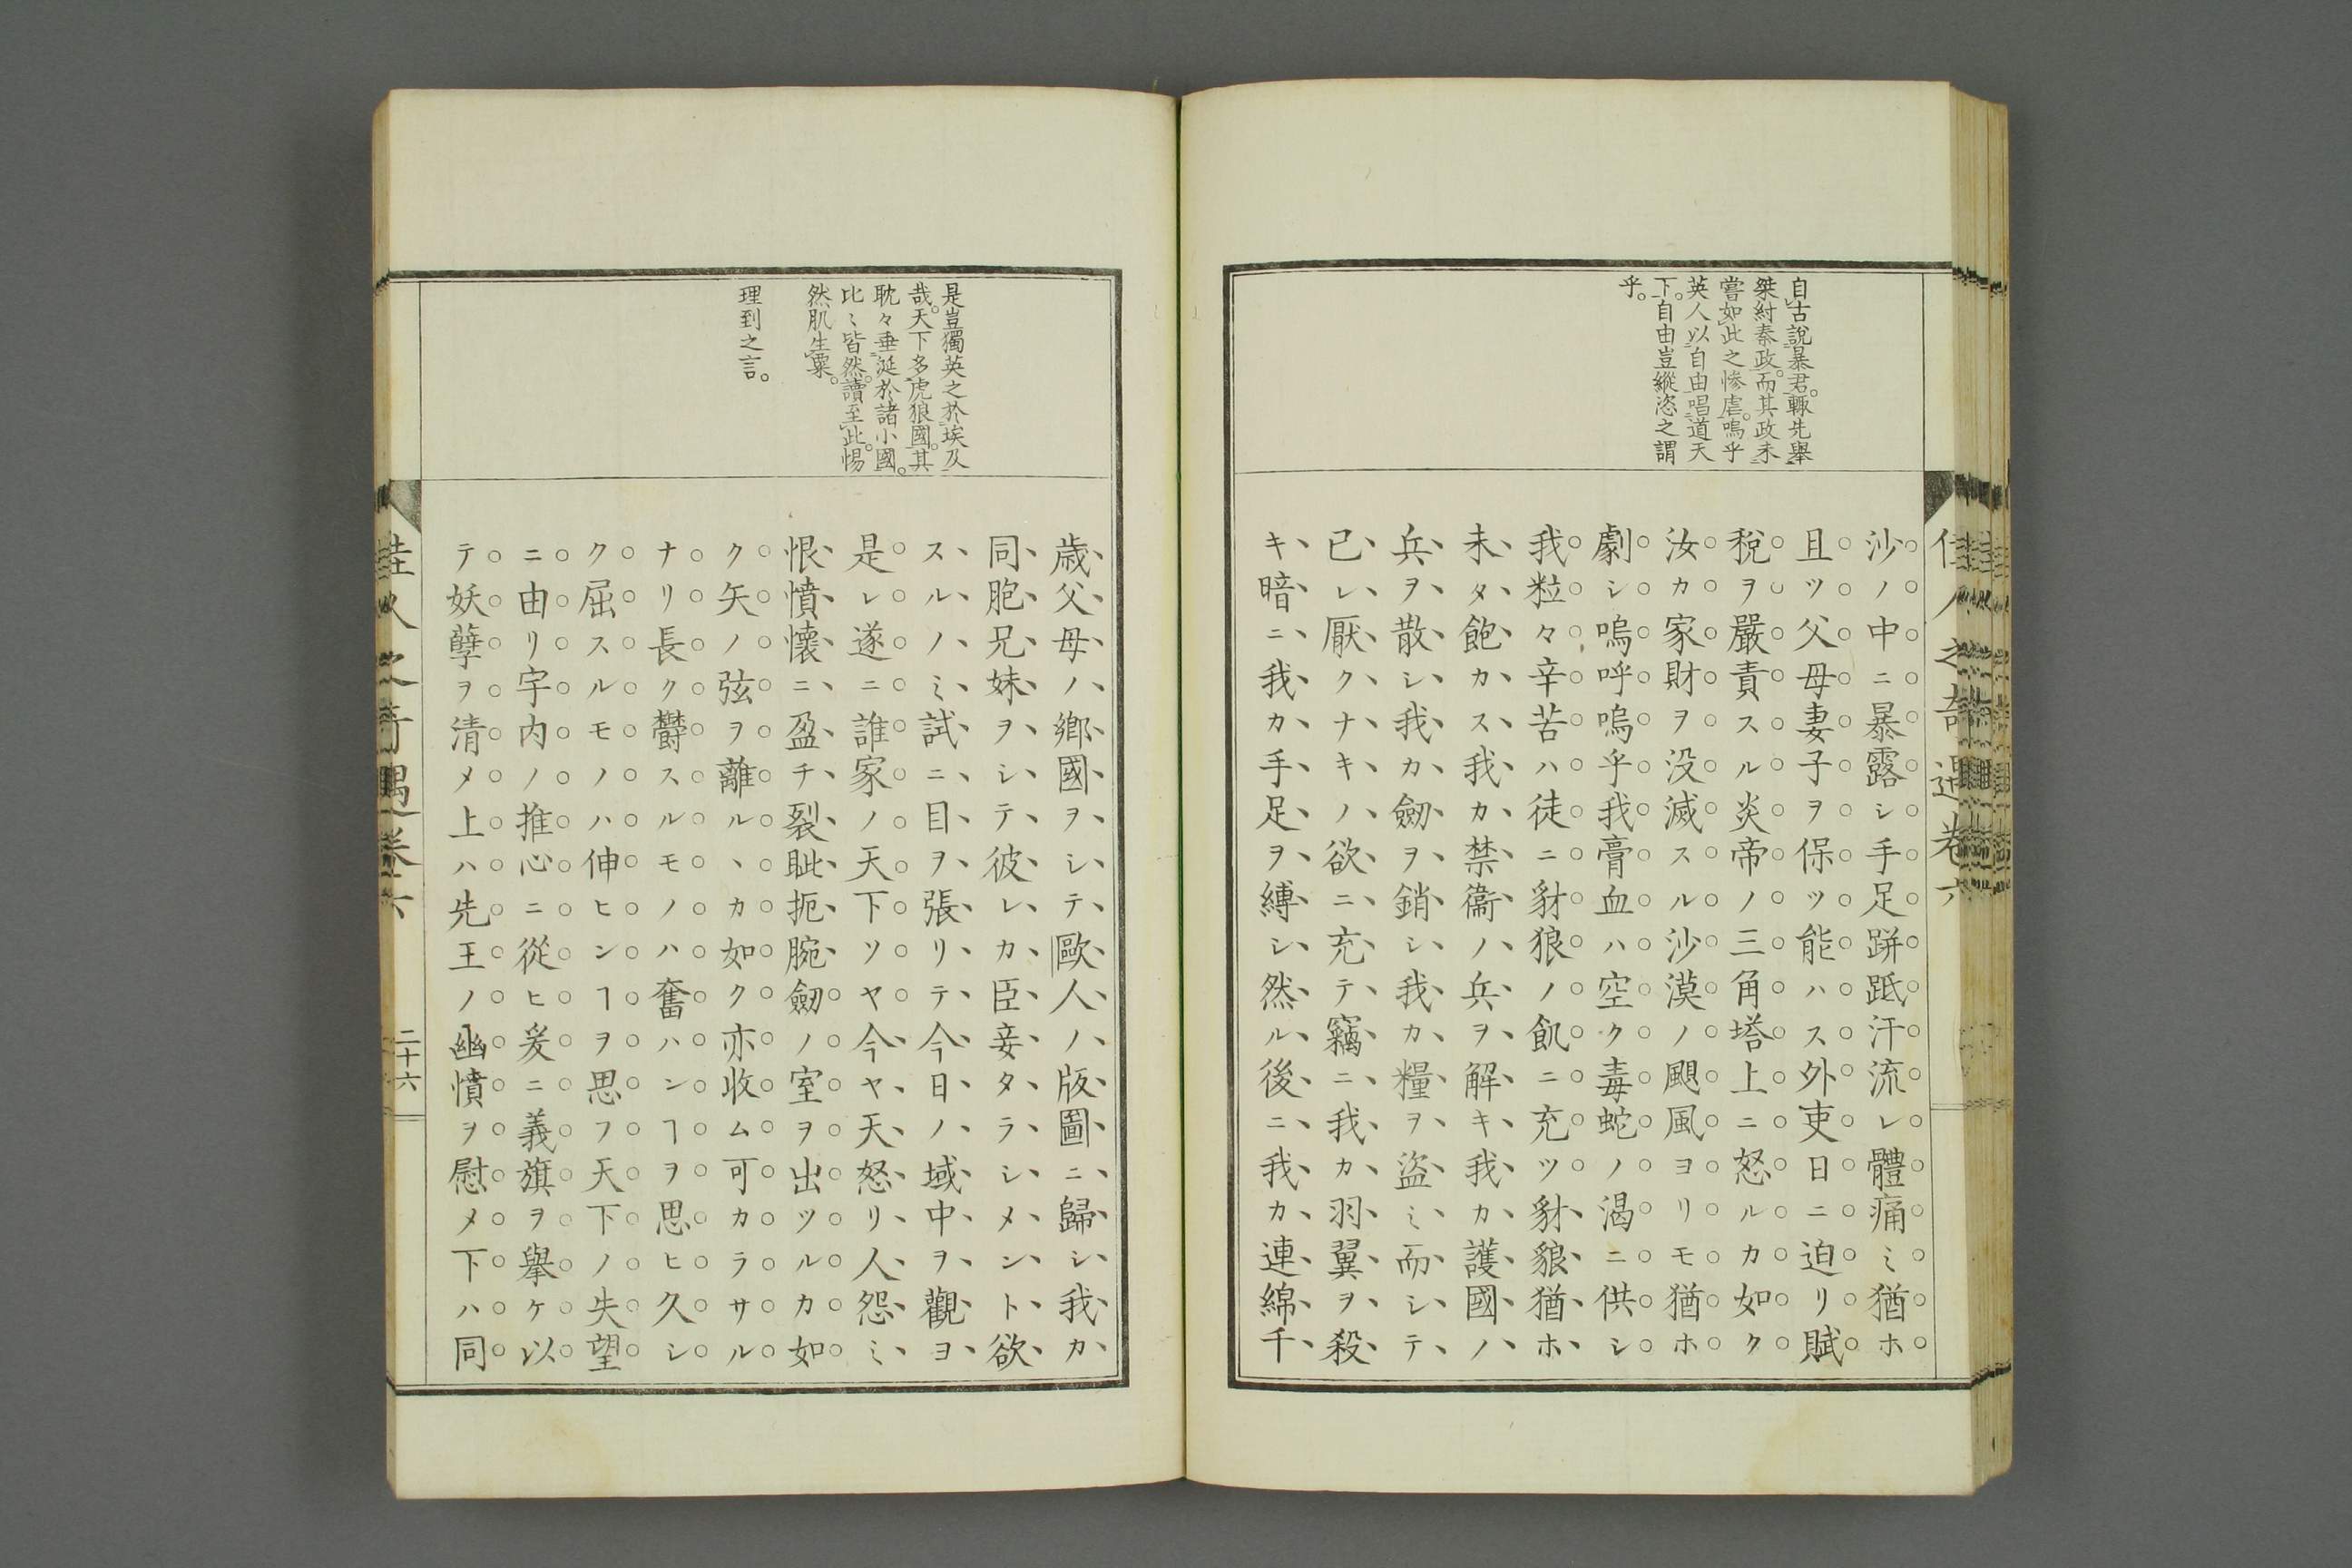 佳人之奇遇卷六
自古說暴君。輙先舉
桀紂秦政。而其政未
嘗如此之慘虐。嗚乎
英人以自由唱道天
下。自由豈縱恣之謂
乎。
沙ノ中ニ暴露シ手足跰跖汗流レ體痛ミ猶ホ
且ツ父母妻子ヲ保ツ能ハス外吏日ニ迫リ賦
稅ヲ嚴責スル炎帝ノ三角塔上ニ怒ルカ如ク
汝カ家財ヲ没滅スル沙漠ノ颶風ヨリモ猶ホ
劇シ嗚呼嗚乎我膏血ハ空ク毒蛇ノ渴ニ供シ
我粒々辛苦ハ徒ニ豺狼ノ飢ニ充ツ豺貌猶ホ
未タ飽カス我カ禁衞ノ兵ヲ解キ我カ護國ノ
兵ヲ散シ我カ劒ヲ銷シ我カ糧ヲ盜ミ而シテ
已レ厭クナキノ欲ニ充テ竊ニ我カ羽翼ヲ殺
キ暗ニ我カ手足ヲ縛シ然ル後ニ我カ連綿千
是豈獨英之於埃及
哉。天下多虎狼國。其
耽々垂涎於諸小國。
比ミ皆然。讀至此。惕
然肌生粟。
理到之言。
歳父母ノ鄉國ヲシテ歐人ノ版圖ニ歸シ我カ
同胞兄妹ヲシテ彼レカ臣妾タラシメント欲
スルノミ試ニ目ヲ張リテ今日ノ域中ヲ觀ヨ
是レ遂ニ誰家ノ天下ソヤ今ヤ天怒リ人怨ミ
恨憤懷ニ盈チ裂眦扼腕劒ノ室ヲ出ツルカ如
ク矢ノ弦ヲ離ルヽカ如ク亦收ム可カラサル
ナリ長ク欝スルモノハ奮ハンヿヲ思ヒ久シ
ク屈スルモノハ伸ヒンヿヲ思フ天下ノ失望
ニ由リ宇内ノ推心ニ從ヒ爰ニ義旗ヲ擧ケ以
テ妖孽ヲ清メ上ハ先王ノ幽憤ヲ慰メ下ハ同
佳人之奇遇卷六
二十六